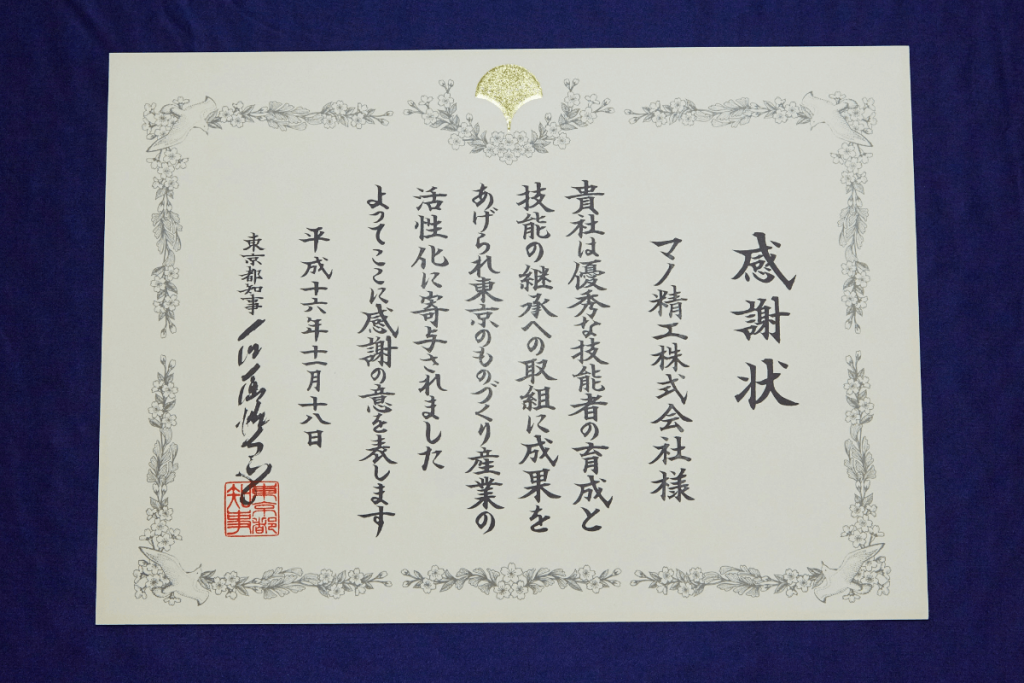 感謝状
マノ精工株式会社様
貴社は優秀な技能者の育成と
技能の継承への取組に成果を
あげられ東京のものづくり産業の
活性化に寄与されました
よってここに感謝の意を表します
平成十六年十一月十八日
東京都知事 石原慎太郎
東京都
知事